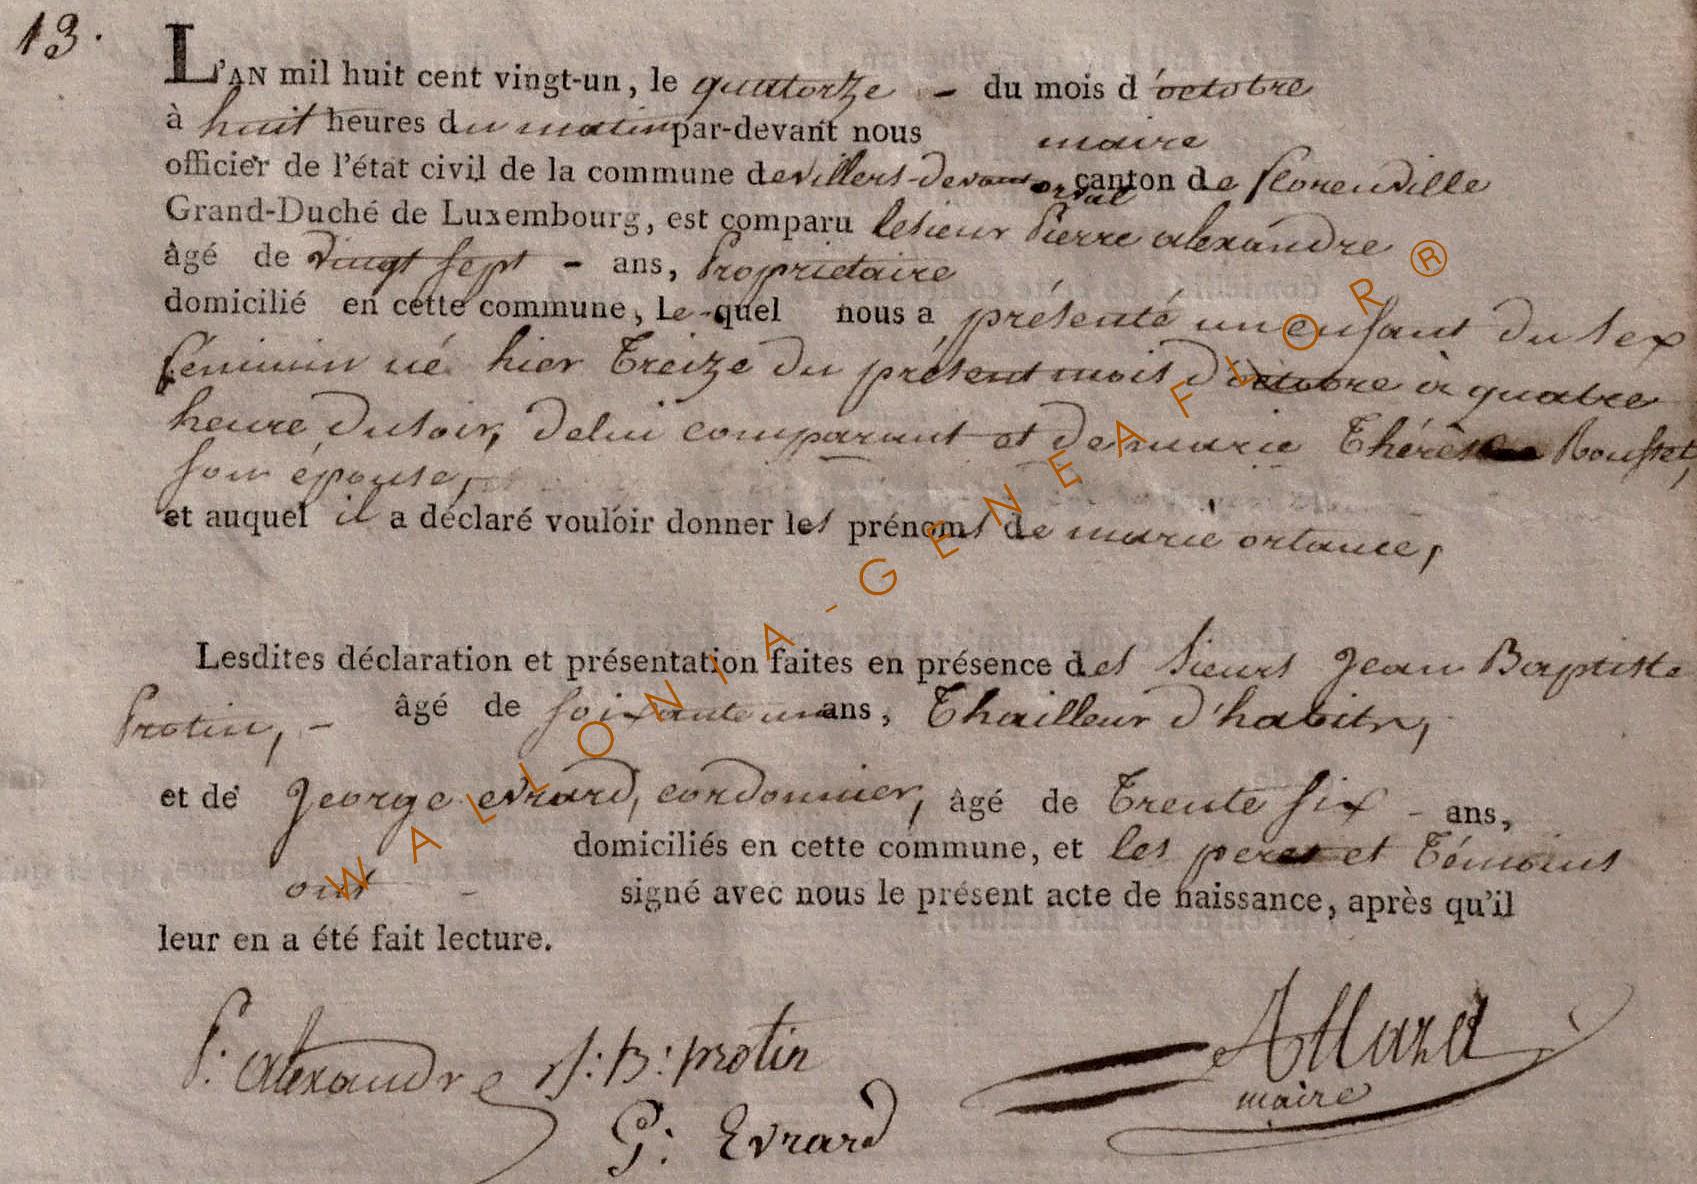 13.
L'AN mil huit cent vingt-un, le quatorze - du mois d'octobre
à huit heures du matin par-devant nous maire
officier de l'état civil de la commune de villers-devant orval canton de florenville
Grand-Duché de Luxembourg, est comparu le sieur Pierre alexandre
âgé de vingt sept - ans, Proprietaire
domicilié en cette commune, Le-quel nous a présenté un enfant du sex
féminin né hier Treize du présent mois d'octobre à quatre
heure du soir, de lui comparant et de marie Thérèse Rousset,
son épouse,
et auquel il a déclaré vouloir donner les prénoms de marie ortance,
Lesdites déclaration et présentation faites en présence des sieurs Jean Baptiste
Protin, - âgé de soixante un ans, Thailleur d'habits,
et de George evrard, cordonnier, âgé de Trente six - ans,
domiciliés en cette commune, et les peres et Témoins
ont - signé avec nous le présent acte de naissance, après qu'il
leur en a été fait lecture.
P: alexandre J: B: protin
maire
G: Evrard
WALLONIA-GENEAFLOR®